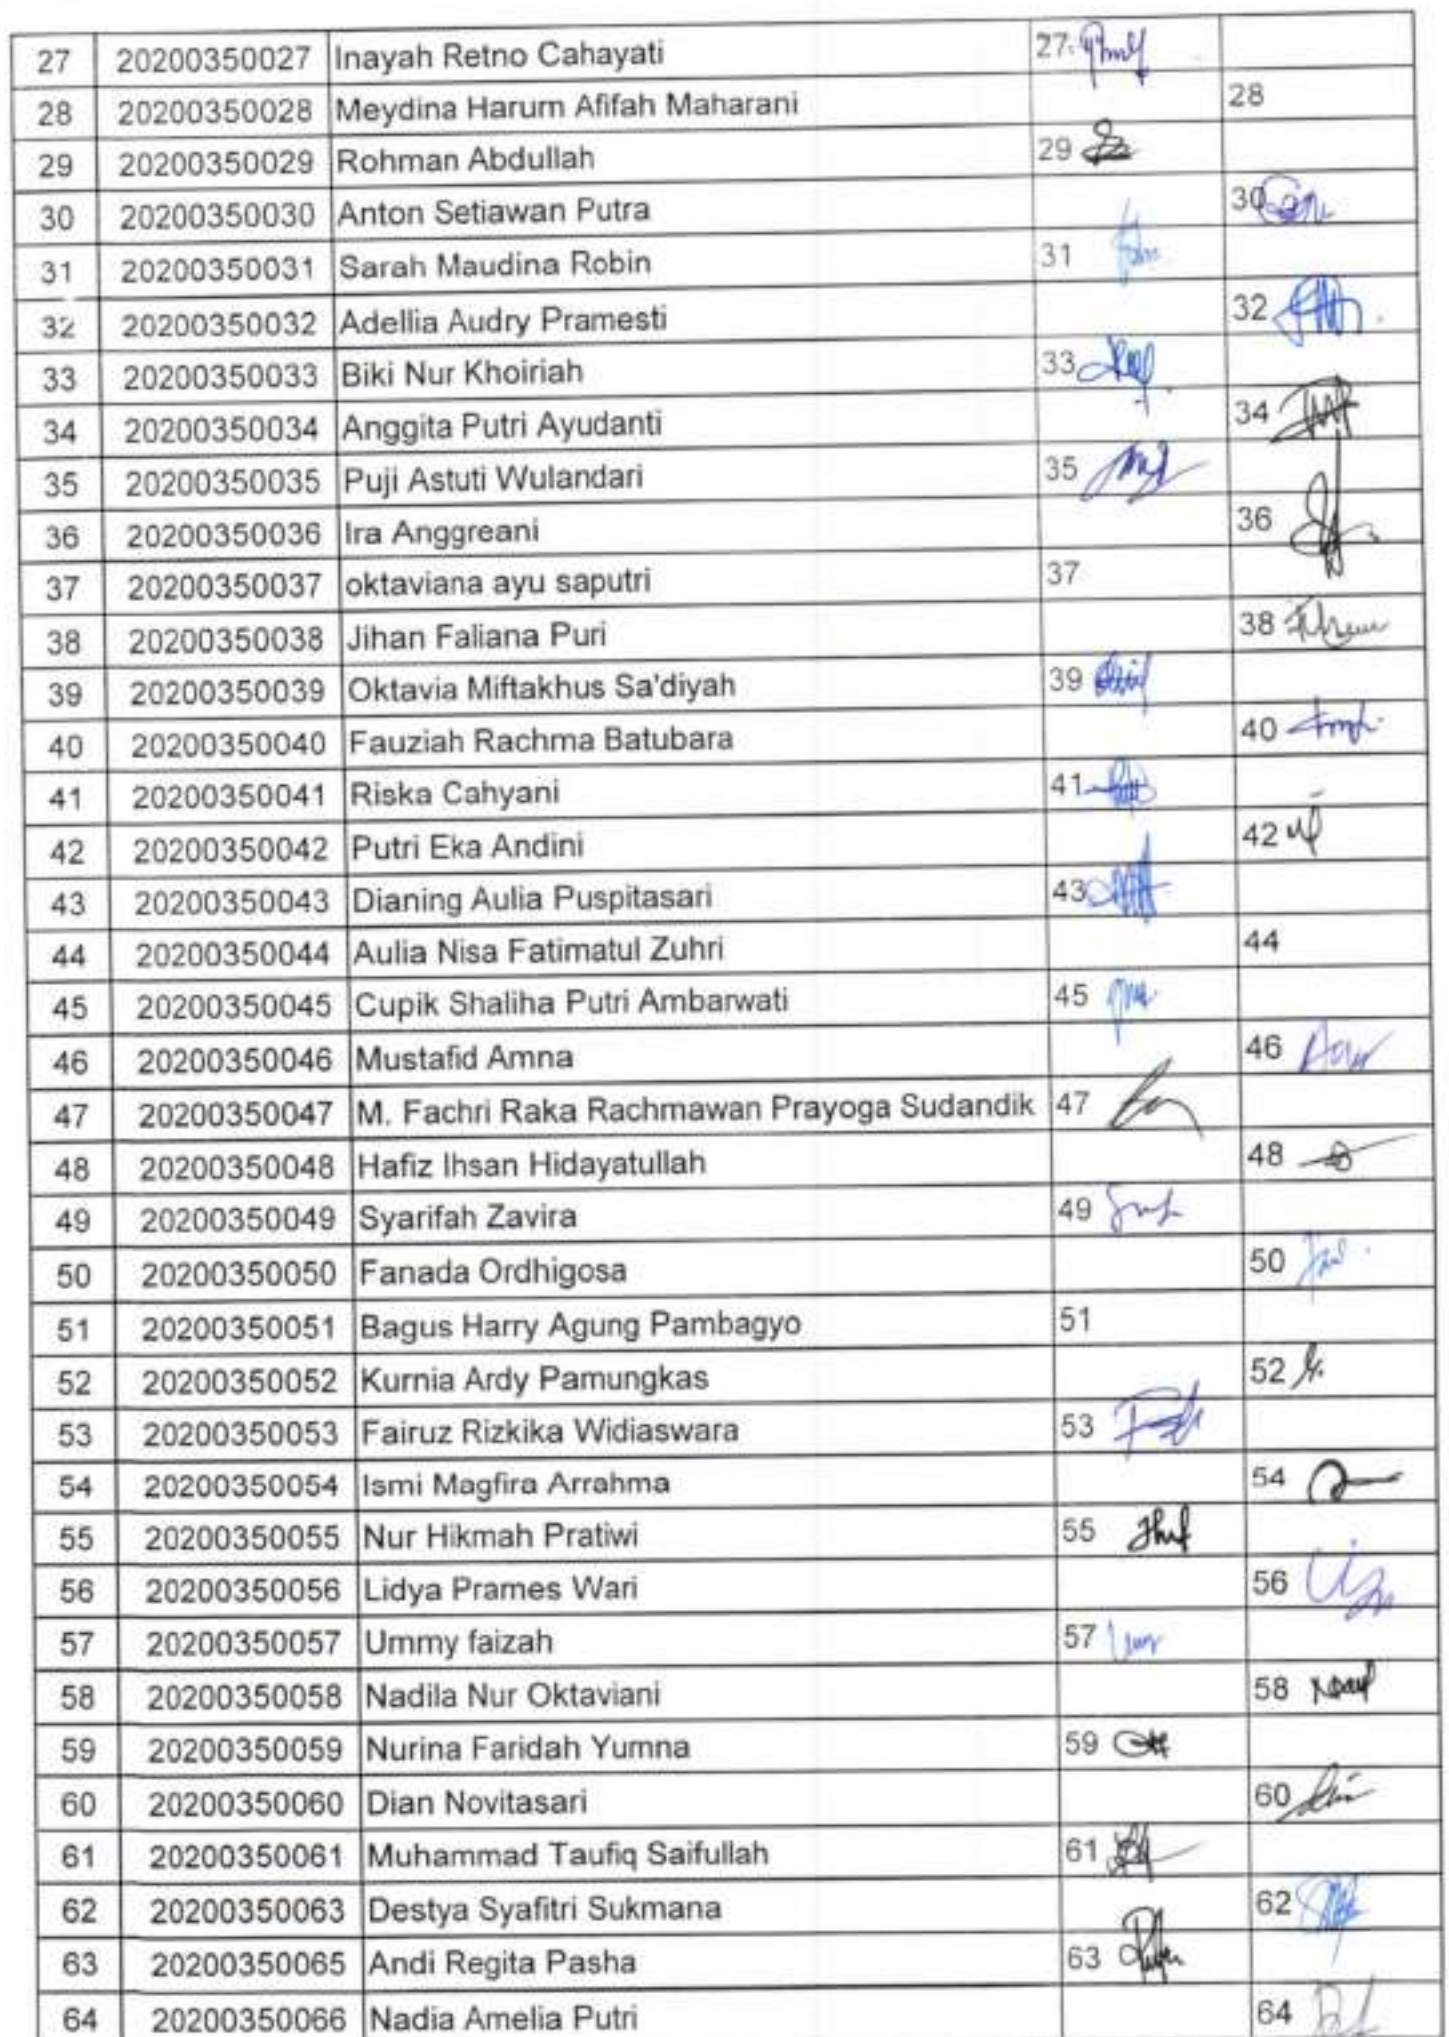 27 20200350027 Inayah Retno Cahayati 27.
28 20200350028 Meydina Harum Afifah Maharani 28
29 20200350029 Rohman Abdullah 29
30 20200350030 Anton Setiawan Putra 30
31 20200350031 Sarah Maudina Robin 31
32 20200350032 Adellia Audry Pramesti 32
33 20200350033 Biki Nur Khoiriah 33
34 20200350034 Anggita Putri Ayudanti 34
35 20200350035 Puji Astuti Wulandari 35
36 20200350036 Ira Anggreani 36
37 20200350037 oktaviana ayu saputri 37
38 20200350038 Jihan Faliana Puri 38
39 20200350039 Oktavia Miftakhus Sa'diyah 39
40 20200350040 Fauziah Rachma Batubara 40
41 20200350041 Riska Cahyani 41
42 20200350042 Putri Eka Andini 42
43 20200350043 Dianing Aulia Puspitasari 43
44 20200350044 Aulia Nisa Fatimatul Zuhri 44
45 20200350045 Cupik Shaliha Putri Ambarwati 45
46 20200350046 Mustafid Amna 46
47 20200350047 M. Fachri Raka Rachmawan Prayoga Sudandik 47
48 20200350048 Hafiz Ihsan Hidayatullah 48
49 20200350049 Syarifah Zavira 49
50 20200350050 Fanada Ordhigosa 50
51 20200350051 Bagus Harry Agung Pambagyo 51
52 20200350052 Kurnia Ardy Pamungkas 52
53 20200350053 Fairuz Rizkika Widiaswara 53
54 20200350054 Ismi Magfira Arrahma 54
55 20200350055 Nur Hikmah Pratiwi 55
56 20200350056 Lidya Prames Wari 56
57 20200350057 Ummy faizah 57
58 20200350058 Nadila Nur Oktaviani 58
59 20200350059 Nurina Faridah Yumna 59
60 20200350060 Dian Novitasari 60
61 20200350061 Muhammad Taufiq Saifullah 61
62 20200350063 Destya Syafitri Sukmana 62
63 20200350065 Andi Regita Pasha 63
64 20200350066 Nadia Amelia Putri 64